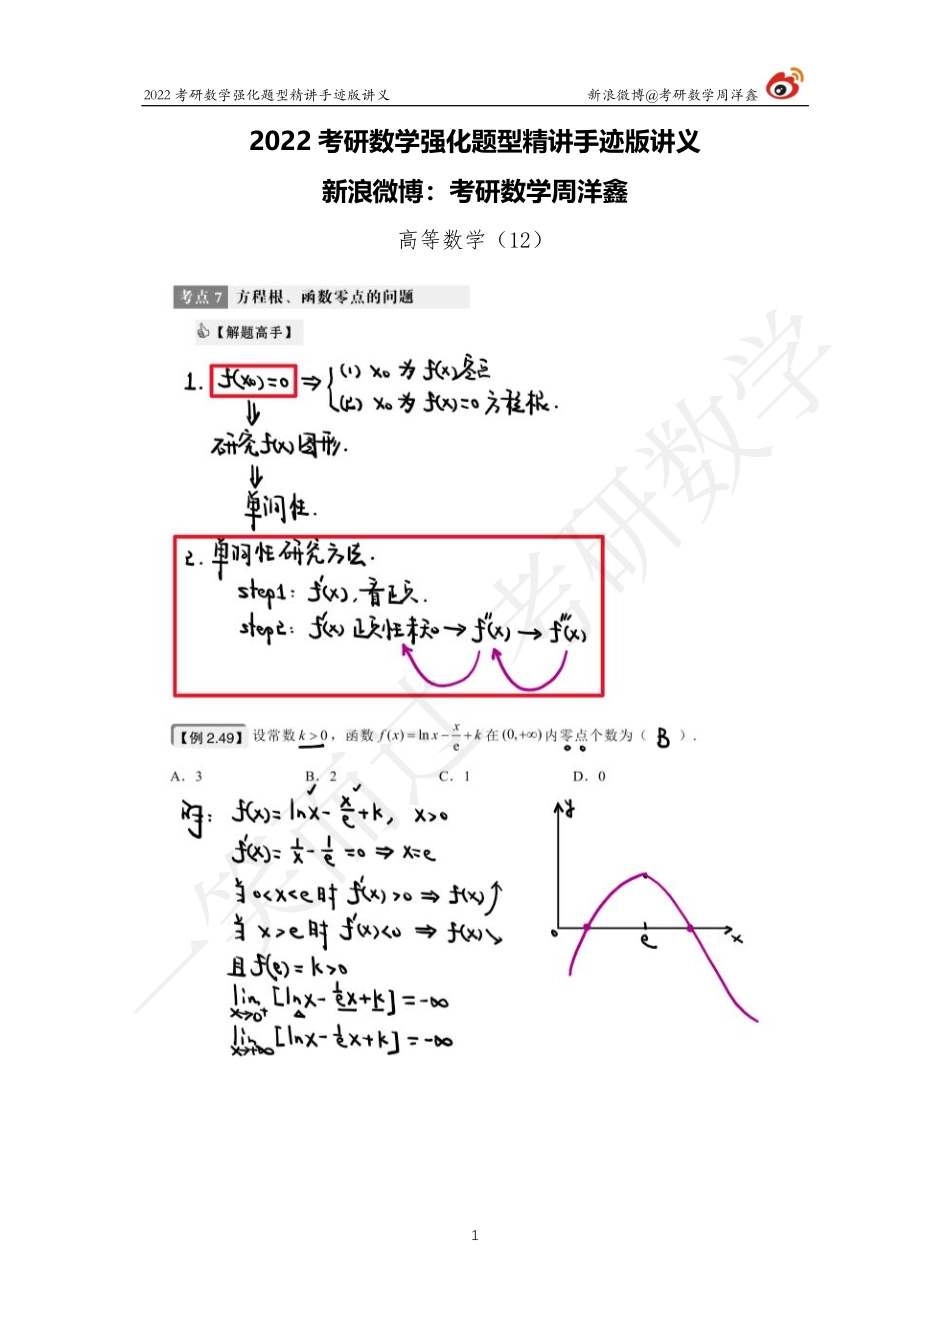 2022 考研数学强化题型精讲手迹版讲义 新浪微博@考研数学周洋鑫
2022 考研数学强化题型精讲手迹版讲义
新浪微博：考研数学周洋鑫
高等数学（12）
考点 7 方程根、函数零点的问题
【解题高手】
1. f(x₀)=0 ⇒ { (1) x₀ 为 f(x)零点
(2) x₀ 为 f(x)=0 方程根.
⇓
研究f(x)图形.
⇓
单调性.
2. 单调性研究方法.
step1: f'(x), 看正负.
step2: f'(x) 正负性未知 → f''(x) → f'''(x)
【例 2.49】设常数 k > 0，函数 f(x) = ln x − x/e + k 在 (0,+∞) 内零点个数为（ B ）.
A. 3 B. 2 C. 1 D. 0
解: f(x)= lnx- x/e +k, x>0
f'(x)= 1/x - 1/e =0 ⇒ x=e
当 0<x<e 时 f'(x) >0 ⇒ f(x)↗
当 x>e 时 f'(x)<0 ⇒ f(x)↘
且 f(e) = k>0
lim x→0⁺ [lnx- 1/e x+k] = -∞
lim x→+∞ [lnx- 1/e x+k] = -∞
y
o e x
一笑而过 考研数学
1